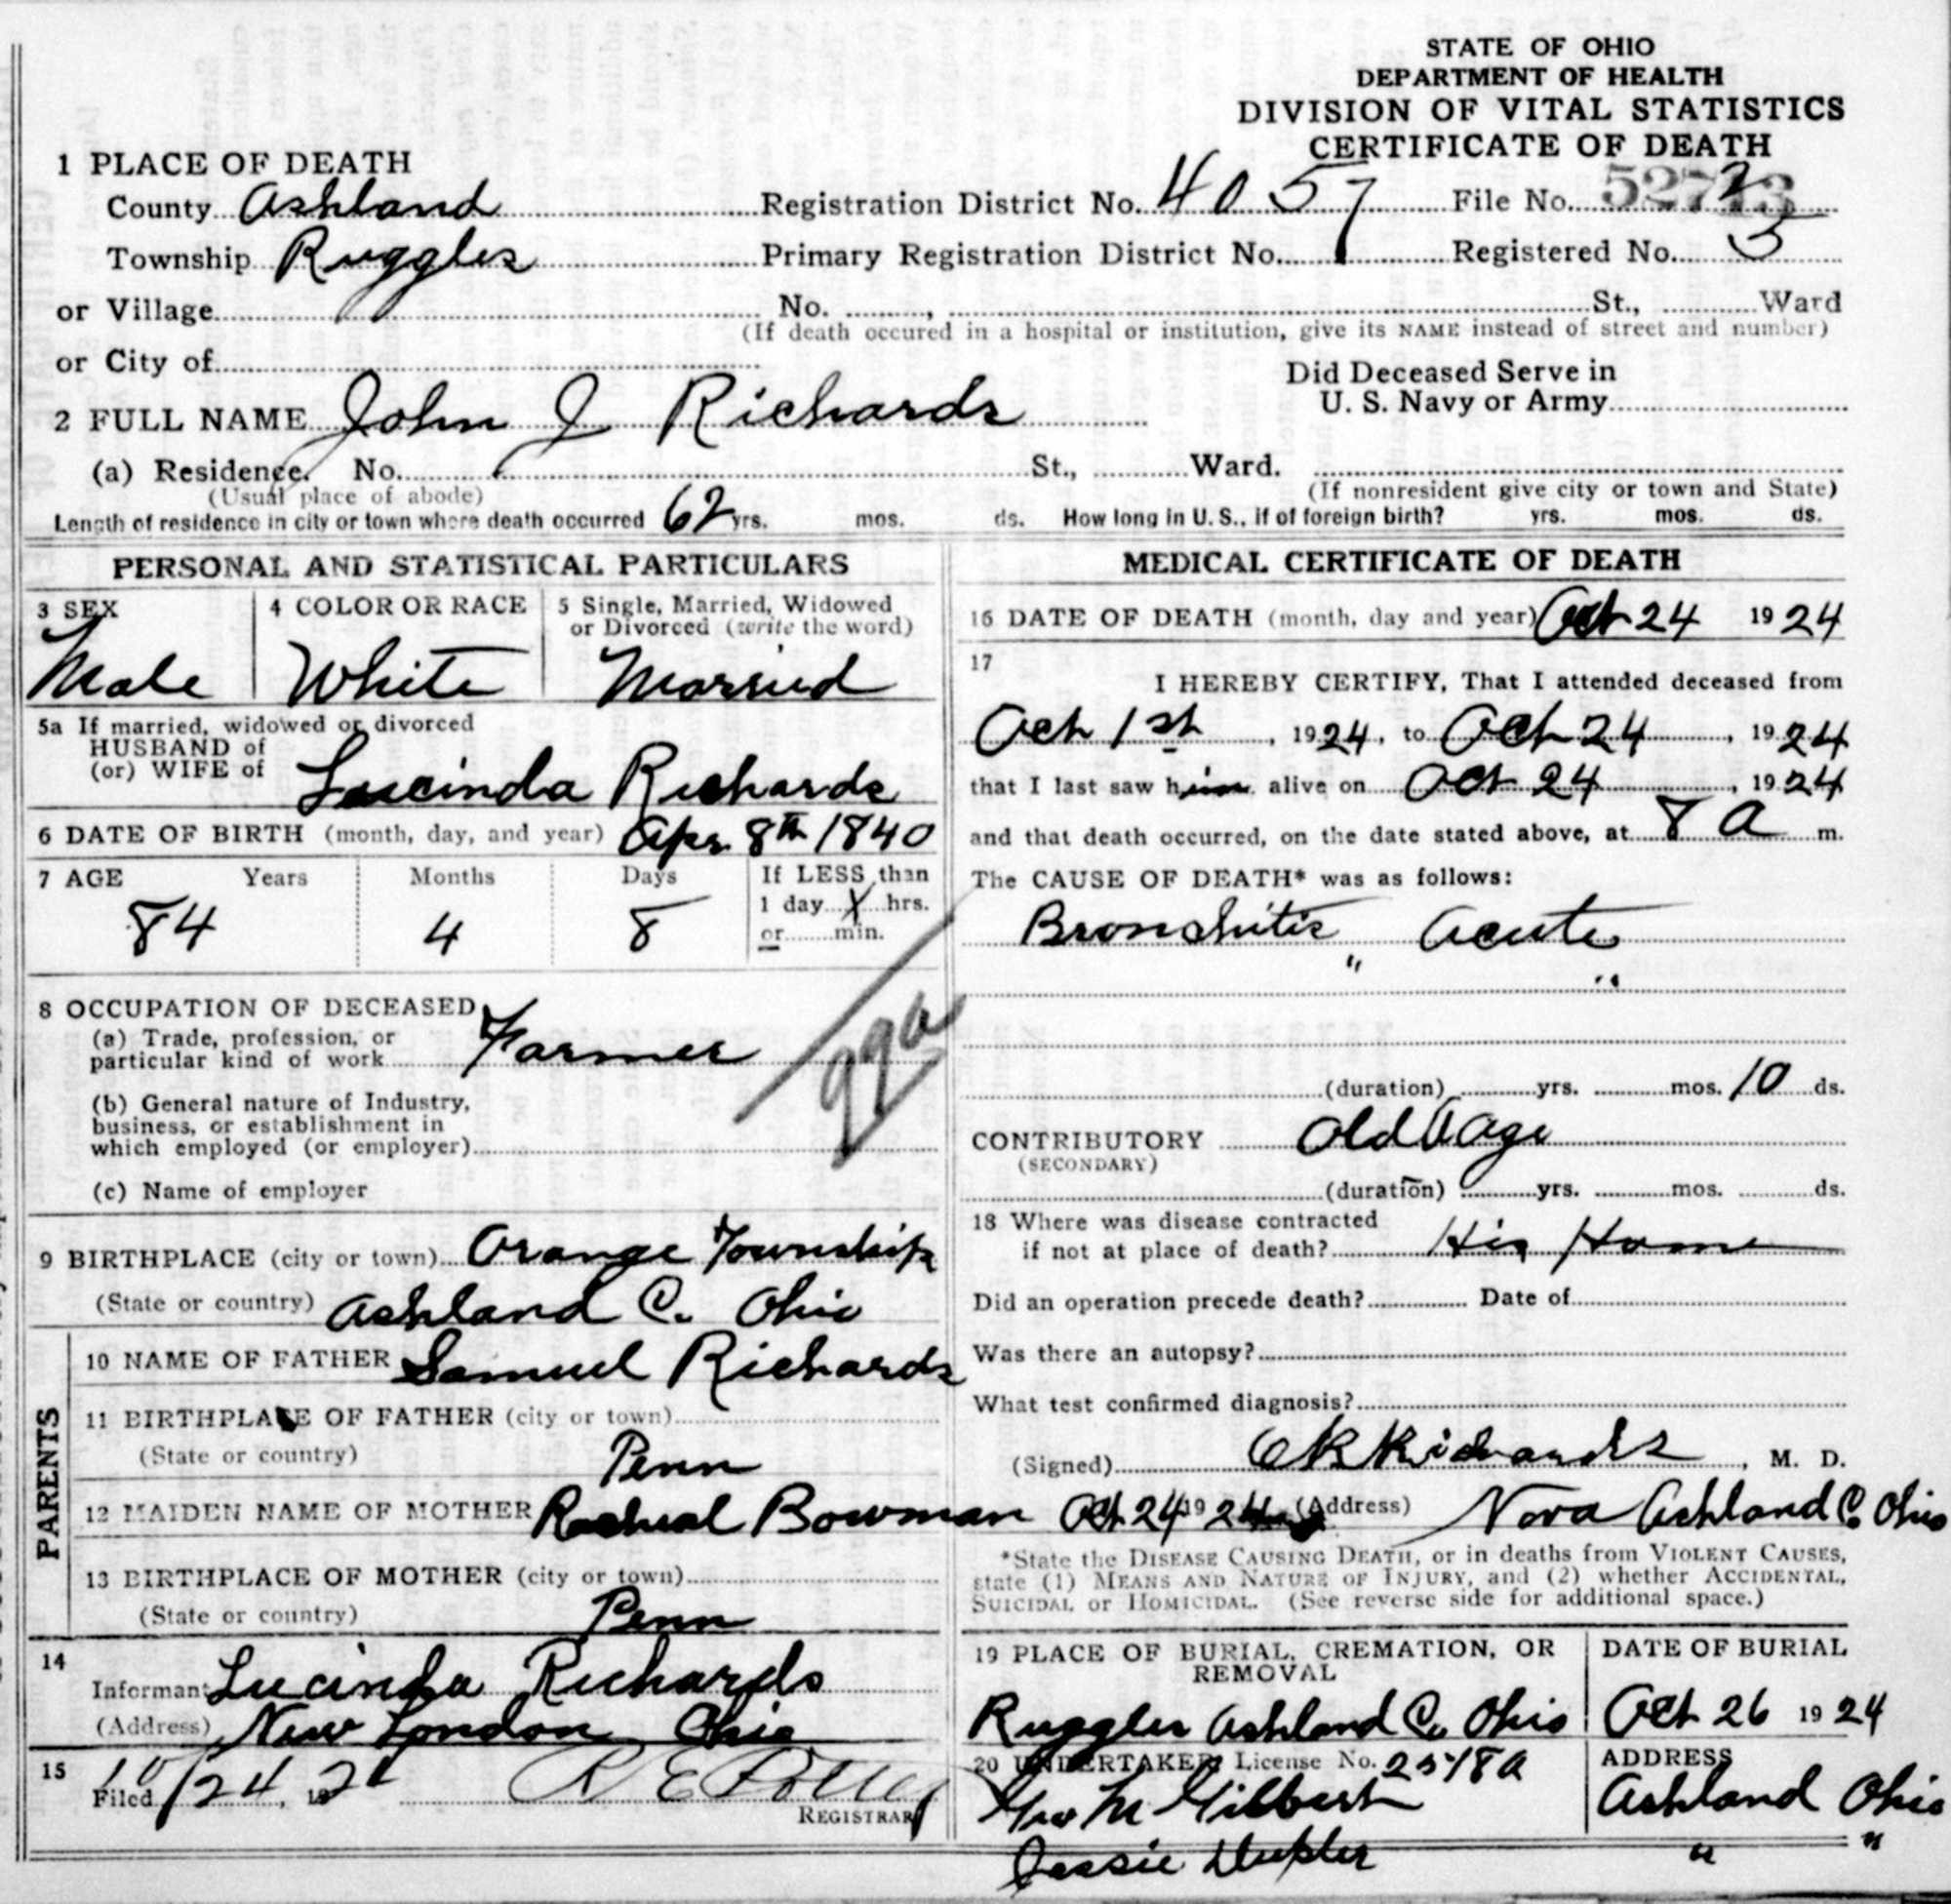 STATE OF OHIO
DEPARTMENT OF HEALTH
DIVISION OF VITAL STATISTICS
CERTIFICATE OF DEATH
1 PLACE OF DEATH
County Ashland Registration District No. 4057 File No.
Township Ruggles Primary Registration District No. Registered No. 5
or Village No. , St., Ward
(If death occured in a hospital or institution, give its NAME instead of street and number)
or City of
Did Deceased Serve in
U. S. Navy or Army
2 FULL NAME John J Richards
(a) Residence. No. St., Ward.
(Usual place of abode) (If nonresident give city or town and State)
Length of residence in city or town where death occurred 62 yrs. mos. ds. How long in U. S., if of foreign birth? yrs. mos. ds.
PERSONAL AND STATISTICAL PARTICULARS
3 SEX 4 COLOR OR RACE 5 Single, Married, Widowed
or Divorced (write the word)
Male White Married
5a If married, widowed or divorced
HUSBAND of
(or) WIFE of Lucinda Richards
6 DATE OF BIRTH (month, day, and year) Apr. 8th 1840
7 AGE Years Months Days If LESS than
1 day X hrs.
84 4 8 or min.
8 OCCUPATION OF DECEASED
(a) Trade, profession, or
particular kind of work Farmer
99a
(b) General nature of Industry,
business, or establishment in
which employed (or employer)
(c) Name of employer
9 BIRTHPLACE (city or town) Orange Township
(State or country) Ashland C. Ohio
PARENTS
10 NAME OF FATHER Samuel Richards
11 BIRTHPLACE OF FATHER (city or town)
(State or country) Penn
12 MAIDEN NAME OF MOTHER Racheal Bowman
13 BIRTHPLACE OF MOTHER (city or town)
(State or country) Penn
14
Informant Lucinda Richards
(Address) New London, Ohio
15
Filed 10/24, 192 R E Potter
REGISTRAR
MEDICAL CERTIFICATE OF DEATH
16 DATE OF DEATH (month, day and year) Oct 24 1924
17
I HEREBY CERTIFY, That I attended deceased from
Oct 1st, 1924, to Oct 24, 1924
that I last saw him alive on Oct 24, 1924
and that death occurred, on the date stated above, at 8 A m.
The CAUSE OF DEATH* was as follows:
Bronchitis Acute
" "
(duration) yrs. mos. 10 ds.
CONTRIBUTORY Old Age
(SECONDARY)
(duration) yrs. mos. ds.
18 Where was disease contracted
if not at place of death? His Home
Did an operation precede death? Date of
Was there an autopsy?
What test confirmed diagnosis?
(Signed) Richards, M. D.
Oct 24 1924 (Address) Nova Ashland C. Ohio
*State the DISEASE CAUSING DEATH, or in deaths from VIOLENT CAUSES,
state (1) MEANS AND NATURE OF INJURY, and (2) whether ACCIDENTAL,
SUICIDAL or HOMICIDAL. (See reverse side for additional space.)
19 PLACE OF BURIAL, CREMATION, OR
REMOVAL
DATE OF BURIAL
Ruggles Ashland C. Ohio Oct 26 1924
20 UNDERTAKER License No. 2518A ADDRESS
Geo M Gilbert Ashland Ohio
Jessie " "